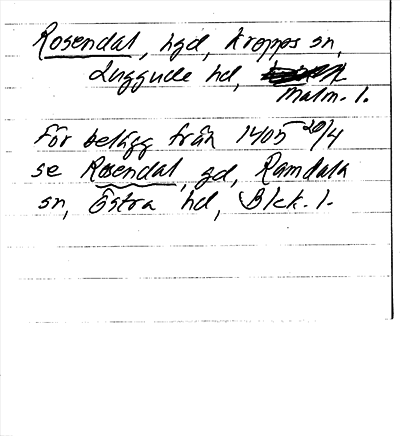 Rosendal, hgd, Kropps sn,
Luggude hd,
Malm. l.
För belägg från 1405 20/4
se Rosendal, gd, Ramdala
sn, Östra hd, Blek. l.